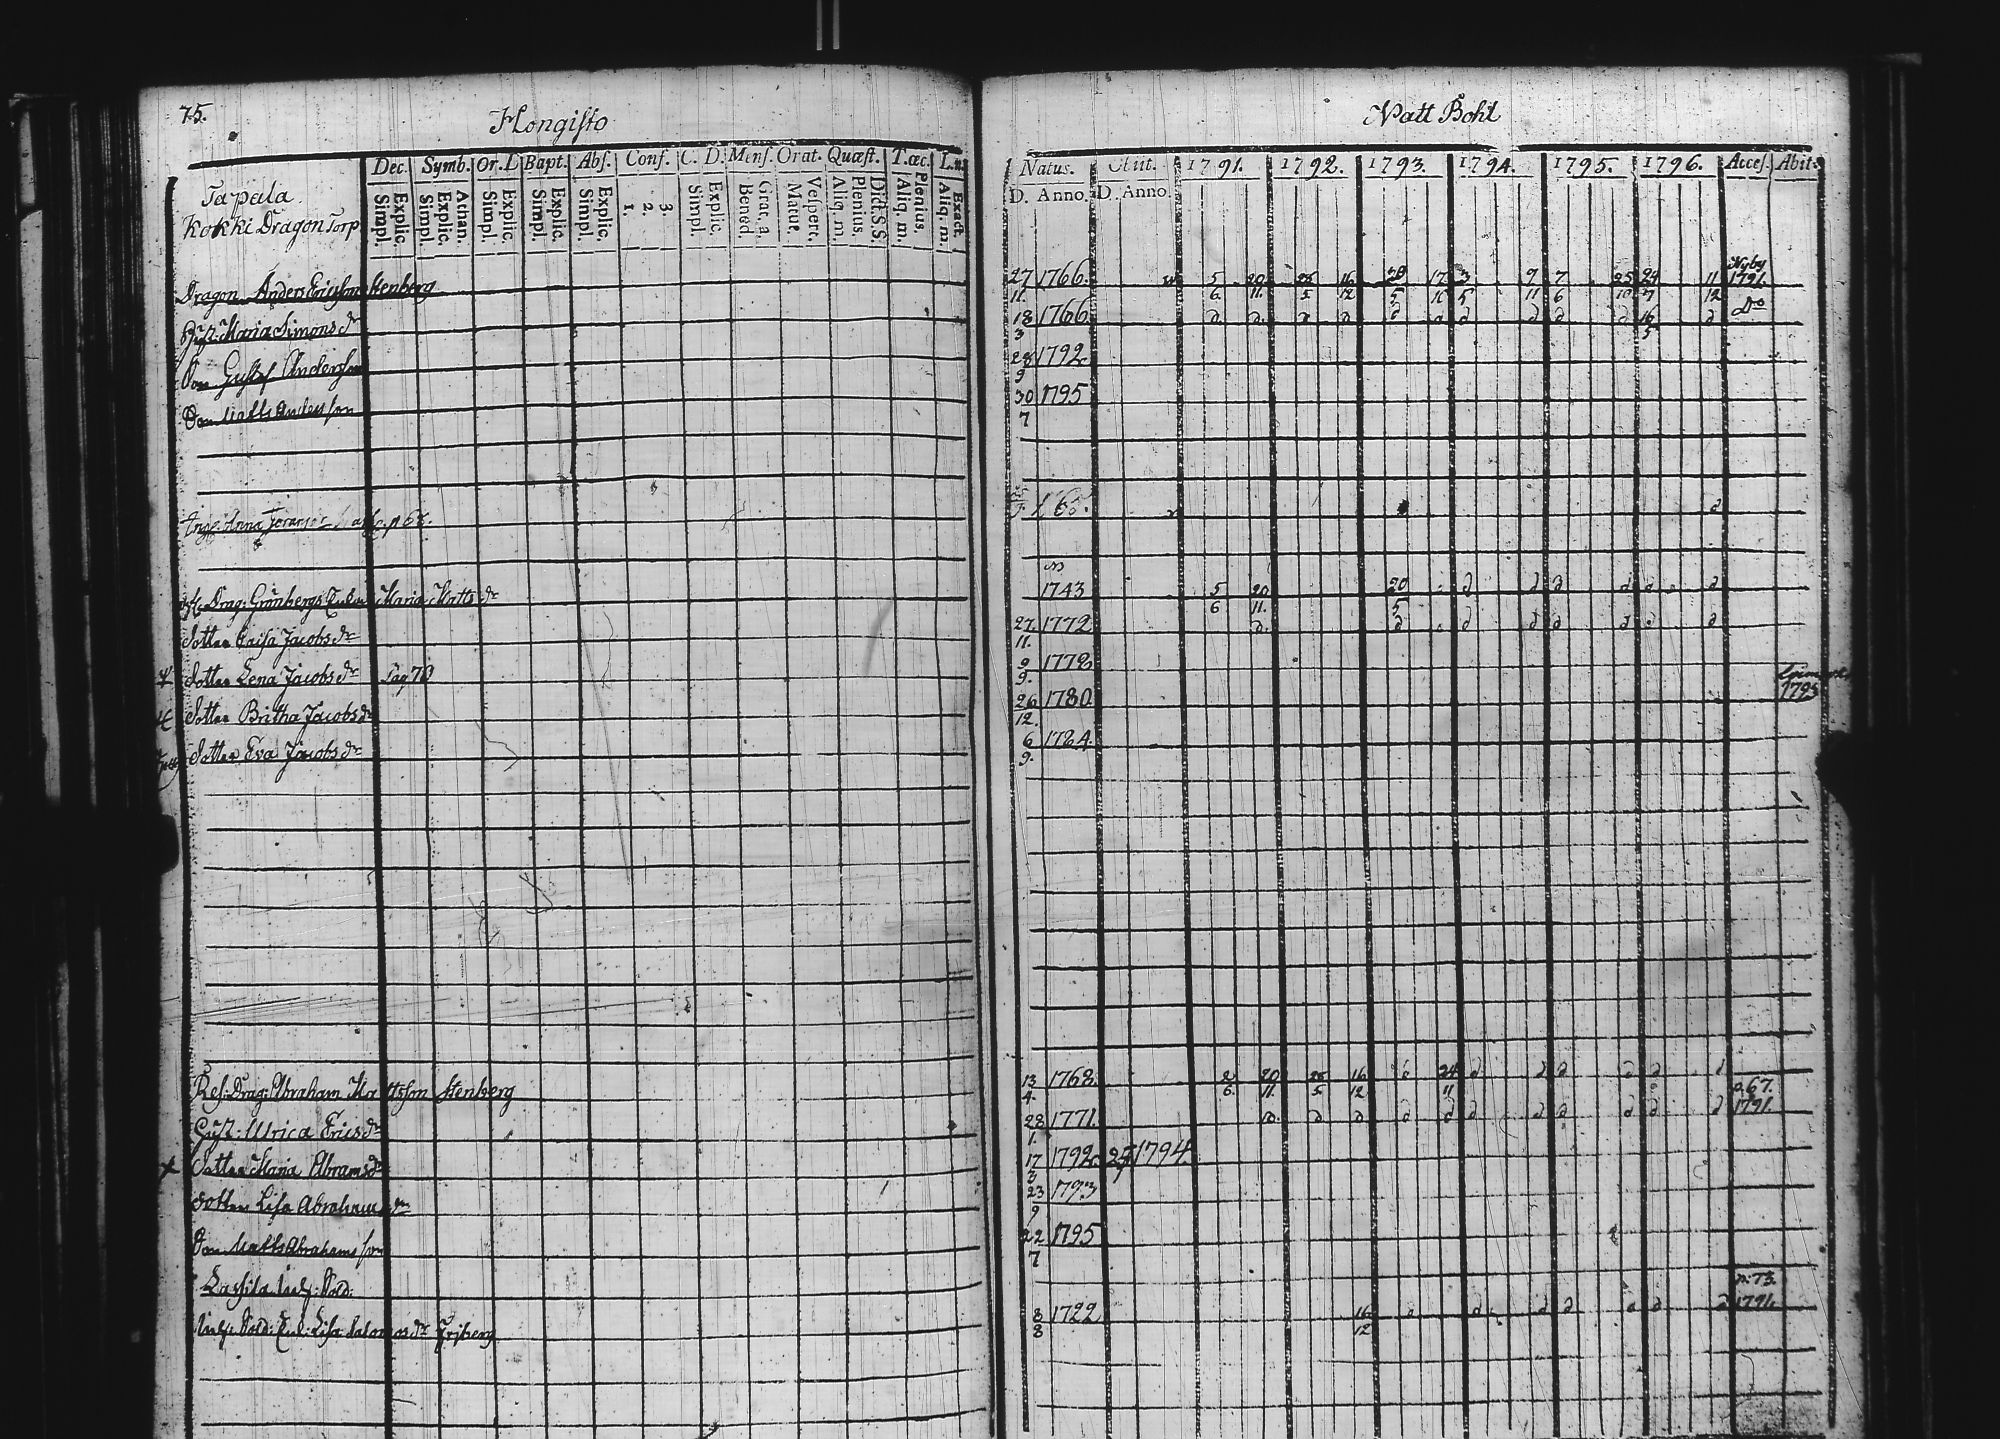 75.
Hongisto
Natt Bohl
Dec. Symb. Or. D Bapt. Abs. Conf. C. D. Mens. Orat. Quæst. T. œc. L.n.
Simpl. Explic. Simpl. Explic. Athan. Simpl. Explic. Simpl. Explic. Simpl. Explic. 1. 2. 3. Simpl. Explic. Bened. Grat. a. Matut. Vespert. Aliq. m. Plenius. Did. S.S. Aliq. m. Plenius. Aliq. m. Exact.
Natus. Obiit. 1791. 1792. 1793. 1794. 1795. 1796. Acces. Abit.
D. Anno. D. Anno.
Tapala
Kokki Dragon Torp
Dragon Anders Ericsson Stenberg 27/11. 1766. 5/6. 20/11. 25/5 16/12 17 3/5 9/11 7/6 25/10 24/7 11/12 Nyby 1791.
Hust: Maria Simons dr 18/3 1766 d. d. d d d d d d d d 16/5 d Do
Son Gustaf Andersson 28/9 1792
Son Matts Andersson 30/7 1795
Anna p 68. d
Drag: Grönbergs Enka Maria Matts dr 1743 5/6 20/11. 20/5 d d d d d d
Dotter Caisa Jacobs dr 27/11. 1772 d. d d d d d d d
Dotter Lena Jacobs dr Pag 70 9/9. 1778
Dotter Britha Jacobs dr 26/12. 1780 1795
Dotter Eva Jacobs dr 6/9. 1784.
Res: Drag: Abraham Mattsson Stenberg 13/4. 1768. 2/6. 20/11. 25/5 16/12 d 24/11 d d d d d d p. 67. 1791.
Hust: Ulrica Erics dr 28/1. 1771. d. d d d d d d d d d d
Dotter Maria Abrams dr 17/3 1792. 1794.
Dotter Lisa Abrahams dr 23/9 1793
Son Matts Abrahamsson 22/7 1795
p. 73.
Sold: Enk: Lisa Salomos dr Frjberg 8/8 1722 16/12 d d d d d d d 1791.